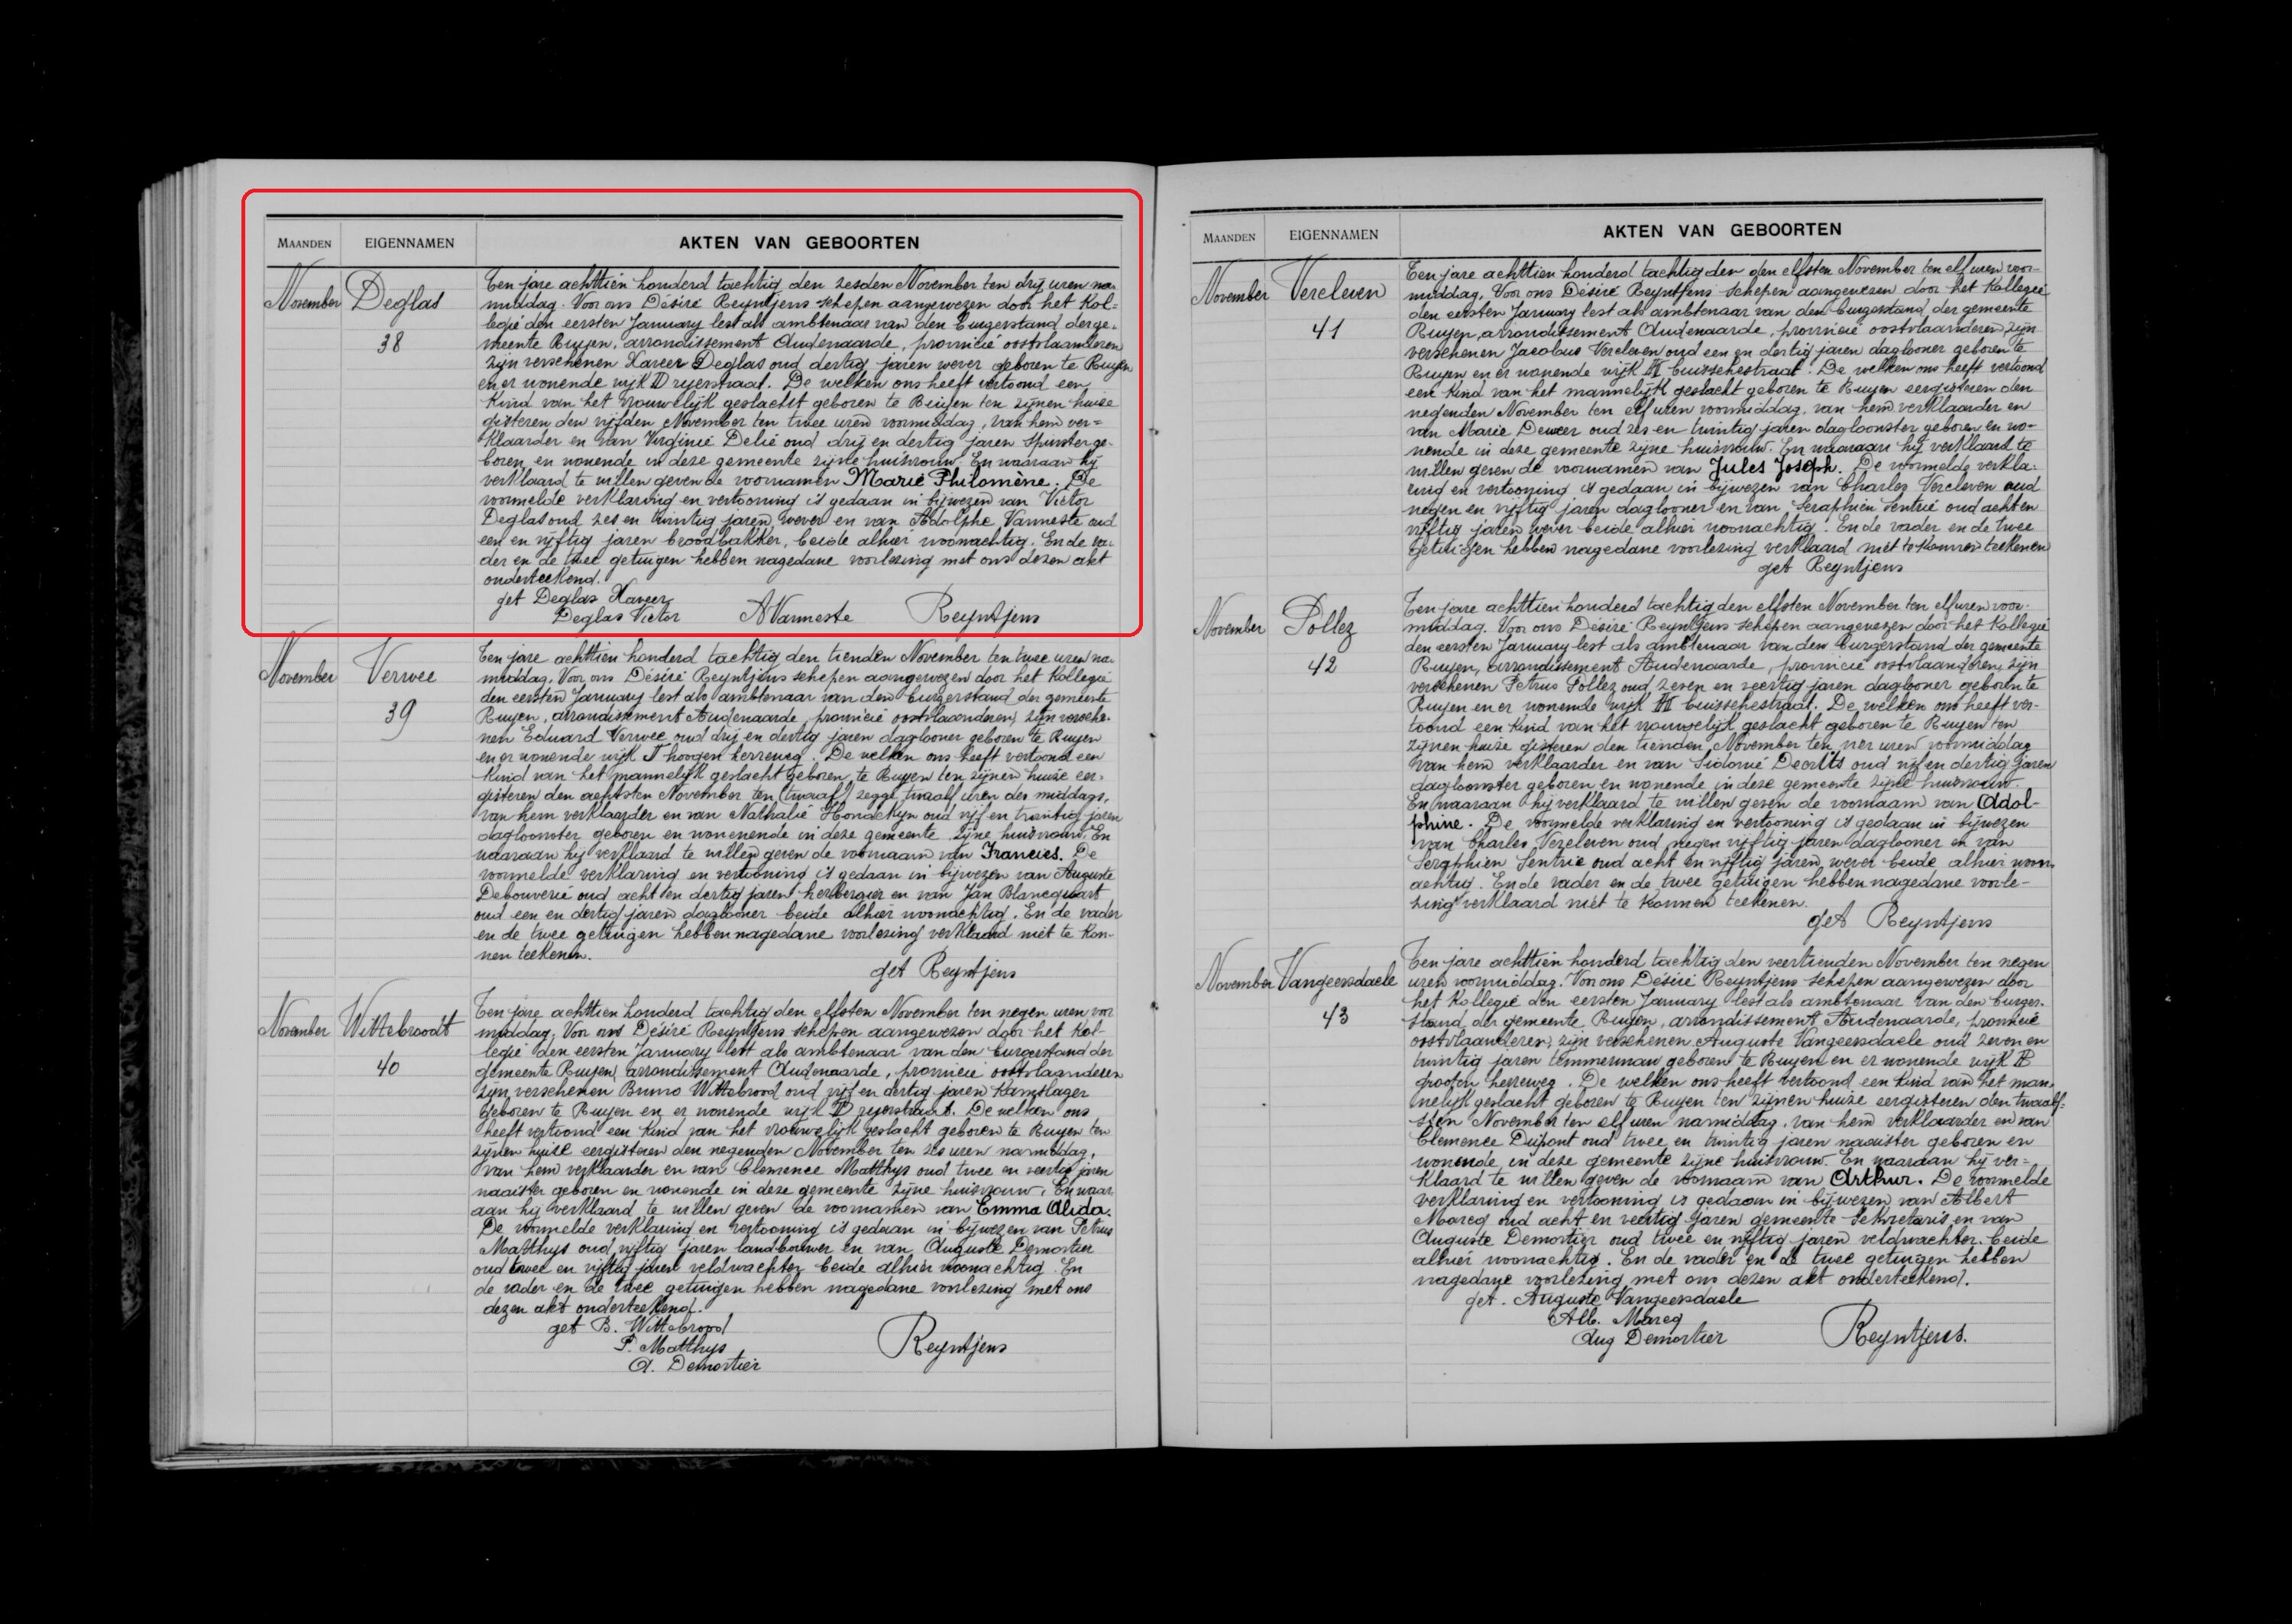 MAANDEN EIGENNAMEN AKTEN VAN GEBOORTEN
November Deglas
38
Ten jare achttien honderd tachtig den zesden November ten drij uren na-
middag. Voor ons Désiré Reyntjens schepen aangewezen door het Kol-
legie den eersten January lest als ambtenaar van den burgerstand der ge-
meente Ruyen, arrondissement Audenaarde, provincie oostvlaanderen
zijn verschenen Xavier Deglas oud dertig jaren wever geboren te Ruyen
en er wonende wijk II rijerstraat. De welken ons heeft vertoond een
Kind van het vrouwelijk geslacht geboren te Ruyen ten zijnen huize
gisteren den vijfden November ten twee uren voormiddag, van hem ver=
klaarder en van Virginie Delié oud drij en dertig jaren spinster ge-
boren en wonende in deze gemeente zijne huisvrouw. En waaraan hij
verklaard te willen geven de voornamen Marie Philomène. De
voormelde verklaring en vertooning is gedaan in bijwezen van Victor
Deglas oud zes en twintig jaren, wever en van Adolphe Vanneste oud
een en vijftig jaren broodbakker, beide alhier woonachtig. En de va-
der en de twee getuigen hebben nagedane voorlezing met ons dezen akt
onderteekend.
get Deglas Xavier
Deglas Victor A Vanneste Reyntjens
November Verwee
39
Ten jare achttien honderd tachtig den tienden November ten twee uren na-
middag, Voor ons Désiré Reyntjens schepen aangewezen door het Kollegie
den eersten January lest als ambtenaar van den burgerstand der gemeente
Ruyen, arrondissement Audenaarde, provincie oostvlaanderen, zijn versche-
nen Eduard Verwee oud drij en dertig jaren daglooner geboren te Ruyen
en er wonende wijk I hoogen herreweg. De welken ons heeft vertoond een
Kind van het mannelijk geslacht geboren te Ruyen ten zijnen huize eer-
gisteren den achtsten November ten (twaalf) zegge twaalf uren des middags,
van hem verklaarder en van Nathalie Hondekyn oud vijf en twintig jaren
dagloonster geboren en wonenende in deze gemeente zijne huisvrouw. En
waaraan hij verklaard te willen geven de voornaam van Francies. De
voormelde verklaring en vertooning is gedaan in bijwezen van Auguste
Debouverie oud acht en dertig jaren herbergier en van Jan Blancquart
oud een en dertig jaren daglooner beide alhier woonachtig. En de vader
en de twee getuigen hebben nagedane voorlezing verklaard niet te kon-
nen teekenen.
get Reyntjens
November Wittebroodt
40
Ten jare achttien honderd tachtig den elfsten November ten negen uren vor
middag, Voor ons Désiré Reyntjens schepen aangewezen door het Kol-
legie den eersten January lest als ambtenaar van den burgerstand der
gemeente Ruyen, arrondissement Audenaarde, provincie oostvlaanderen
zijn verschenen Bruno Wittebrood oud vijf en dertig jaren Kamslager
geboren te Ruyen en er wonende wijk II rijerstraat. De welken ons
heeft vertoond een Kind van het vrouwelijk geslacht geboren te Ruyen ten
zijnen huize eergisteren den negenden November ten zes uren namiddag,
van hem verklaarder en van Clemence Matthys oud twee en veertig jaren
naaister geboren en wonende in deze gemeente zijne huisvrouw. En waar
aan hij verklaard te willen geven de voornamen van Emma Alida.
De voormelde verklaring en vertooning is gedaan in bijwezen van Petrus
Matthys oud vijftig jaren landbouwer en van Auguste Demortier
oud twee en vijftig jaren veldwachter beide alhier woonachtig. En
de vader en de twee getuigen hebben nagedane voorlezing met ons
dezen akt onderteekend.
get B. Wittebrood
P. Matthys Reyntjens
A. Demortier
MAANDEN EIGENNAMEN AKTEN VAN GEBOORTEN
November Vercleven
41
Ten jare achttien honderd tachtig den den elfsten November ten elf uren voor-
middag, Voor ons Désiré Reyntjens schepen aangewezen door het Kollegie
den eersten January lest als ambtenaar van den burgerstand der gemeente
Ruyen, arrondissement Audenaarde, provincie oostvlaanderen, zijn
verschenen Jacobus Vercleven oud een en dertig jaren daglooner geboren te
Ruyen en er wonende wijk III buisschestraat. De welken ons heeft vertoond
een Kind van het mannelijk geslacht geboren te Ruyen eergisteren den
negenden November ten elf uren voormiddag, van hem verklaarder en
van Marie Deweer oud zes en twintig jaren dagloonster geboren en wo-
nende in deze gemeente zijne huisvrouw. En waaraan hij verklaard te
willen geven de voornamen van Jules Joseph. De voormelde verkla-
ring en vertooning is gedaan in bijwezen van Charles Vercleven oud
negen en vijftig jaren daglooner en van Seraphien Sentrie oud acht en
vijftig jaren wever beide alhier woonachtig. En de vader en de twee
getuigen hebben nagedane voorlezing verklaard niet te konnen teekenen
get Reyntjens
November Pollez
42
Ten jare achttien honderd tachtig den elfsten November ten elf uren voor-
middag. Voor ons Désiré Reyntjens schepen aangewezen door het Kollegie
den eersten January lest als ambtenaar van den burgerstand der gemeente
Ruyen, arrondissement Audenaarde, provincie oostvlaanderen, zijn
verschenen Petrus Pollez oud zeven en veertig jaren daglooner geboren te
Ruyen en er wonende wijk III buisschestraat. De welken ons heeft ver-
toond een Kind van het vrouwelijk geslacht geboren te Ruyen ten
zijnen huize gisteren den tienden November ten vier uren voormiddag
van hem verklaarder en van Sidonie oud vijf en dertig jaren
dagloonster geboren en wonende in deze gemeente zijne huisvrouw.
En waaraan hij verklaard te willen geven de voornaam van Odol-
phine. De voormelde verklaring en vertooning is gedaan in bijwezen
van Charles Vercleven oud negen vijftig jaren daglooner en van
Seraphien Sentrie oud acht en vijftig jaren, wever beide alhier woon-
achtig. En de vader en de twee getuigen hebben nagedane voorle-
zing verklaard niet te konnen teekenen.
get Reyntjens
November Vangeersdaele
43
Ten jare achttien honderd tachtig den veertienden November ten negen
uren voormiddag. Voor ons Désiré Reyntjens schepen aangewezen door
het Kollegie den eersten January lest als ambtenaar van den burger-
stand der gemeente Ruyen, arrondissement Audenaarde, provincie
oostvlaanderen, zijn verschenen Auguste Vangeersdaele oud zeven en
twintig jaren timmerman geboren te Ruyen en er wonende wijk II
grooten herreweg. De welken ons heeft vertoond een Kind van het man-
nelijk geslacht geboren te Ruyen ten zijnen huize eergisteren den twaalf-
sten November ten elf uren namiddag, van hem verklaarder en van
Clemence Dupont oud twee en twintig jaren naaister geboren en
wonende in deze gemeente zijne huisvrouw. En waaraan hij ver=
klaard te willen geven de voornaam van Arthur. De voormelde
verklaring en vertooning is gedaan in bijwezen van Albert
Mareq oud acht en veertig jaren gemeente Sekretaris en van
Auguste Demortier oud twee en vijftig jaren veldwachter, beide
alhier woonachtig. En de vader en de twee getuigen hebben
nagedane voorlezing met ons dezen akt onderteekend.
get. Auguste Vangeersdaele
Alb. Mareq
Aug Demortier Reyntjens.